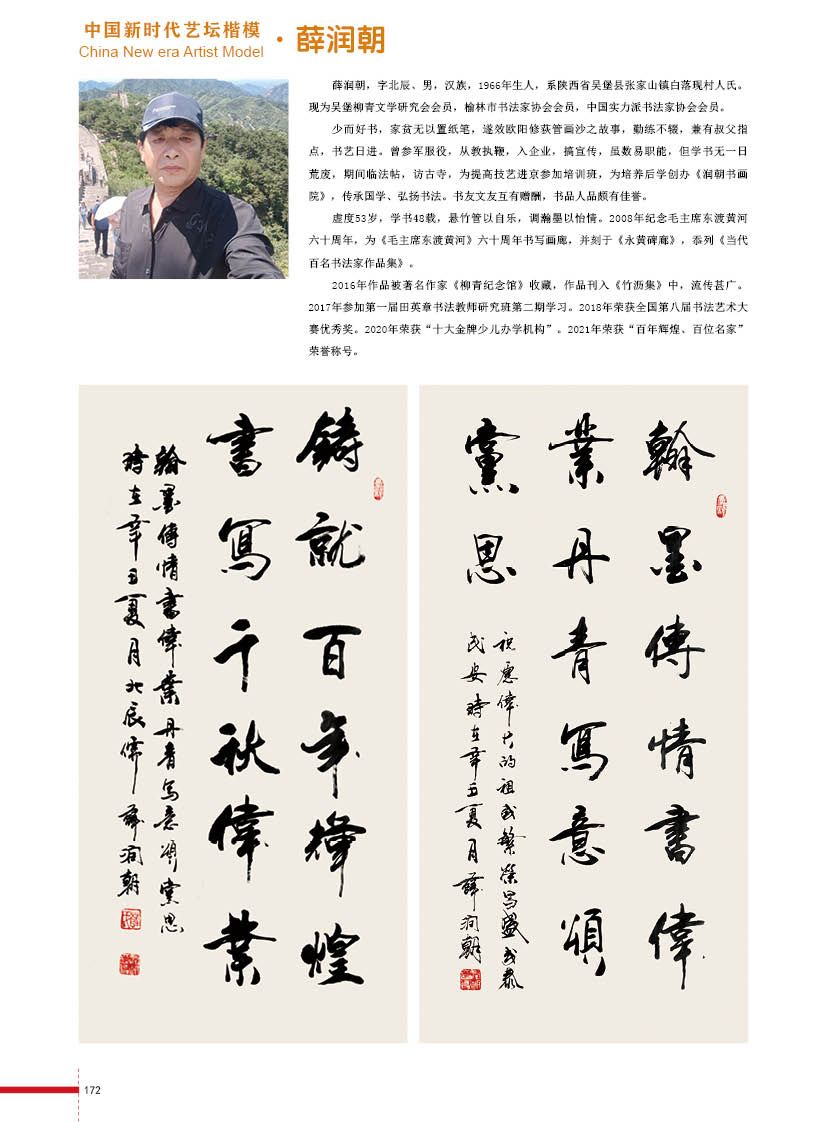 中国新时代艺坛楷模
China New era Artist Model
· 薛润朝
薛润朝，字北辰、男，汉族，1966年生人，系陕西省吴堡县张家山镇白落现村人氏。
现为吴堡柳青文学研究会会员，榆林市书法家协会会员，中国实力派书法家协会会员。
少而好书，家贫无以置纸笔，遂效欧阳修荻管画沙之故事，勤练不辍，兼有叔父指
点，书艺日进。曾参军服役，从教执鞭，入企业，搞宣传，虽数易职能，但学书无一日
荒废，期间临法帖，访古寺，为提高技艺进京参加培训班，为培养后学创办《润朝书画
院》，传承国学、弘扬书法。书友文友互有赠酬，书品人品颇有佳誉。
虚度53岁，学书48载，悬竹管以自乐，调瀚墨以怡情。2008年纪念毛主席东渡黄河
六十周年，为《毛主席东渡黄河》六十周年书写画廊，并刻于《永黄碑廊》，忝列《当代
百名书法家作品集》。
2016年作品被著名作家《柳青纪念馆》收藏，作品刊入《竹沥集》中，流传甚广。
2017年参加第一届田英章书法教师研究班第二期学习。2018年荣获全国第八届书法艺术大
赛优秀奖。2020年荣获“十大金牌少儿办学机构”。2021年荣获“百年辉煌、百位名家”
荣誉称号。
鑄就百年輝煌
書寫千秋偉業
翰墨傳情書偉業丹青寫意頌黨思
時在辛丑夏月北辰儒薛润朝
翰墨傳情書偉
業丹青寫意頌
黨思
祝愿偉大的祖國繁榮昌盛國泰
民安時在辛丑夏月薛润朝
172